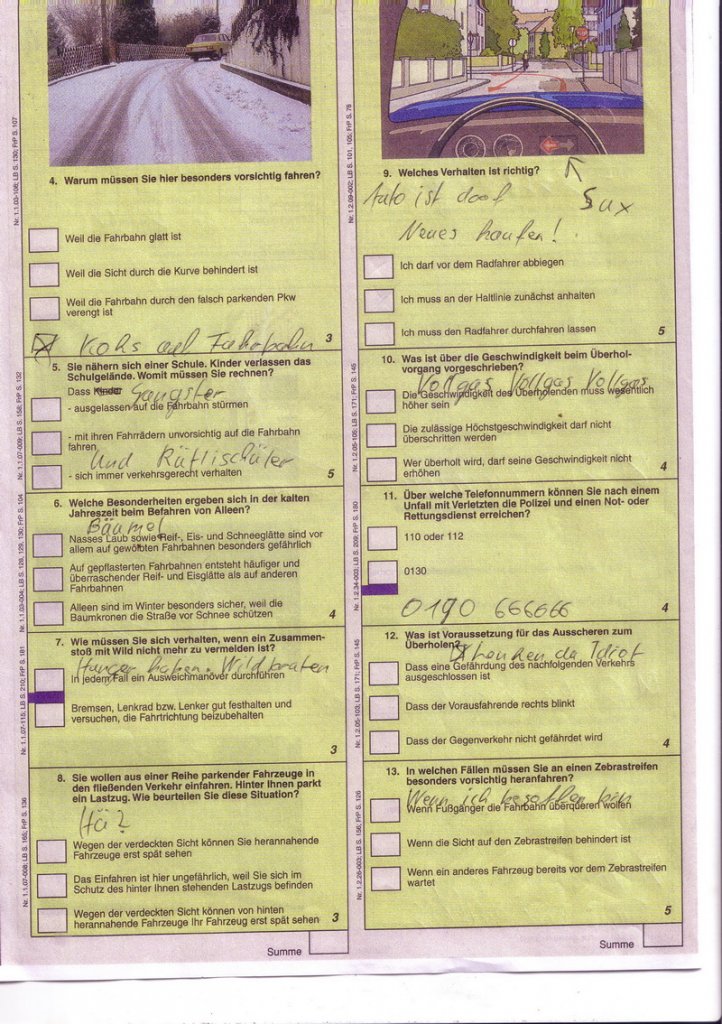 4. Warum müssen Sie hier besonders vorsichtig fahren?
Weil die Fahrbahn glatt ist
Weil die Sicht durch die Kurve behindert ist
Weil die Fahrbahn durch den falsch parkenden Pkw
verengt ist
3
Koks auf Fahrbahn
5. Sie nähern sich einer Schule. Kinder verlassen das
Schulgelände. Womit müssen Sie rechnen?
Dass Kinder Gangster
- ausgelassen auf die Fahrbahn stürmen
- mit ihren Fahrrädern unvorsichtig auf die Fahrbahn
fahren
Und Rütlischüler
- sich immer verkehrsgerecht verhalten
5
6. Welche Besonderheiten ergeben sich in der kalten
Jahreszeit beim Befahren von Alleen?
Bäume!
Nasses Laub sowie Reif-, Eis- und Schneeglätte sind vor
allem auf gewölbten Fahrbahnen besonders gefährlich
Auf gepflasterten Fahrbahnen entsteht häufiger und
überraschender Reif- und Eisglätte als auf anderen
Fahrbahnen
Alleen sind im Winter besonders sicher, weil die
Baumkronen die Straße vor Schnee schützen
4
7. Wie müssen Sie sich verhalten, wenn ein Zusammen-
stoß mit Wild nicht mehr zu vermeiden ist?
Hunger haben. Wildbraten
In jedem Fall ein Ausweichmanöver durchführen
Bremsen, Lenkrad bzw. Lenker gut festhalten und
versuchen, die Fahrtrichtung beizubehalten
3
8. Sie wollen aus einer Reihe parkender Fahrzeuge in
den fließenden Verkehr einfahren. Hinter Ihnen parkt
ein Lastzug. Wie beurteilen Sie diese Situation?
Hä?
Wegen der verdeckten Sicht können Sie herannahende
Fahrzeuge erst spät sehen
Das Einfahren ist hier ungefährlich, weil Sie sich im
Schutz des hinter Ihnen stehenden Lastzugs befinden
Wegen der verdeckten Sicht können von hinten
herannahende Fahrzeuge Ihr Fahrzeug erst spät sehen
3
Summe
9. Welches Verhalten ist richtig?
Auto ist doof
Sux
Neues kaufen!
Ich darf vor dem Radfahrer abbiegen
Ich muss an der Haltlinie zunächst anhalten
Ich muss den Radfahrer durchfahren lassen
5
10. Was ist über die Geschwindigkeit beim Überhol-
vorgang vorgeschrieben?
Vollgas Vollgas Vollgas
Die Geschwindigkeit des Überholenden muss wesentlich
höher sein
Die zulässige Höchstgeschwindigkeit darf nicht
überschritten werden
Wer überholt wird, darf seine Geschwindigkeit nicht
erhöhen
4
11. Über welche Telefonnummern können Sie nach einem
Unfall mit Verletzten die Polizei und einen Not- oder
Rettungsdienst erreichen?
110 oder 112
0130
0190 666666
4
12. Was ist Voraussetzung für das Ausscheren zum
Überholen?
da Idiot
Dass eine Gefährdung des nachfolgenden Verkehrs
ausgeschlossen ist
Dass der Vorausfahrende rechts blinkt
Dass der Gegenverkehr nicht gefährdet wird
4
13. In welchen Fällen müssen Sie an einen Zebrastreifen
besonders vorsichtig heranfahren?
Wenn ich besoffen bin
Wenn Fußgänger die Fahrbahn überqueren wollen
Wenn die Sicht auf den Zebrastreifen behindert ist
Wenn ein anderes Fahrzeug bereits vor dem Zebrastreifen
wartet
5
Summe